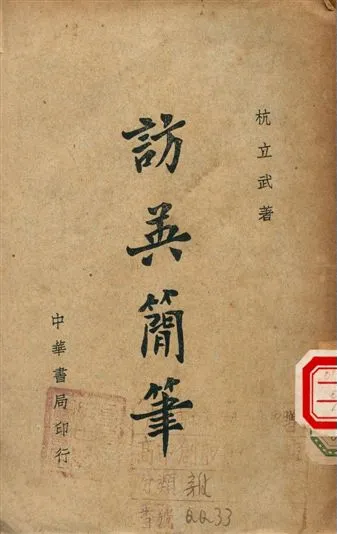 杭立武著
訪英簡筆
中華書局印行
分類 雜
書號 6.0.33